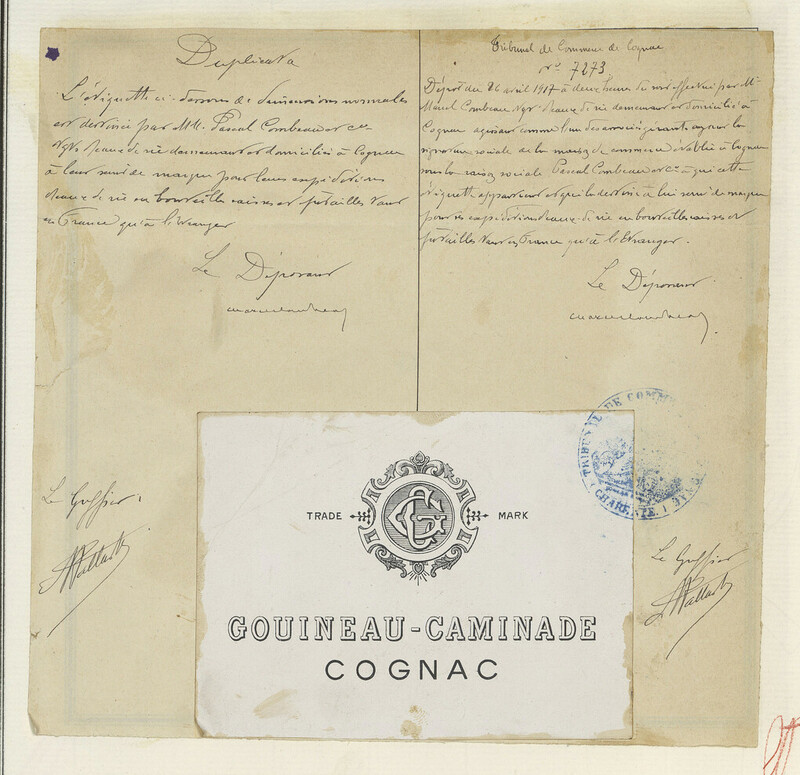 Duplicata
L'étiquette ci-dessous de dimensions normales
est destinée par MM. Pascal Combeau et Cie
Ngts d'eaux de vie demeurant et domiciliés à Cognac
à leur servir de marque pour leurs expéditions
d'eaux de vie en bouteilles caisses et futailles tant
en France qu'à l'étranger
Le Déposant
Marcel Combeau
Tribunal de Commerce de Cognac
No 7273
Dépôt du 26 avril 1917 à deux heures du soir effectué par M.
Marcel Combeau Ngt d'eaux de vie demeurant et domicilié à
Cognac agissant comme l'un des associés gérants ayant la
signature sociale de la maison de commerce établie à Cognac
sous la raison sociale Pascal Combeau et Cie à qui cette
étiquette appartient et qui la destine à lui servir de marque
pour ses expéditions d'eaux de vie en bouteilles caisses et
futailles tant en France qu'à l'Etranger.
Le Déposant
Marcel Combeau
TRIBUNAL DE COMM
CHARENTE
Le Greffier
Le Greffier
TRADE MARK
GC
GOUINEAU-CAMINADE
COGNAC